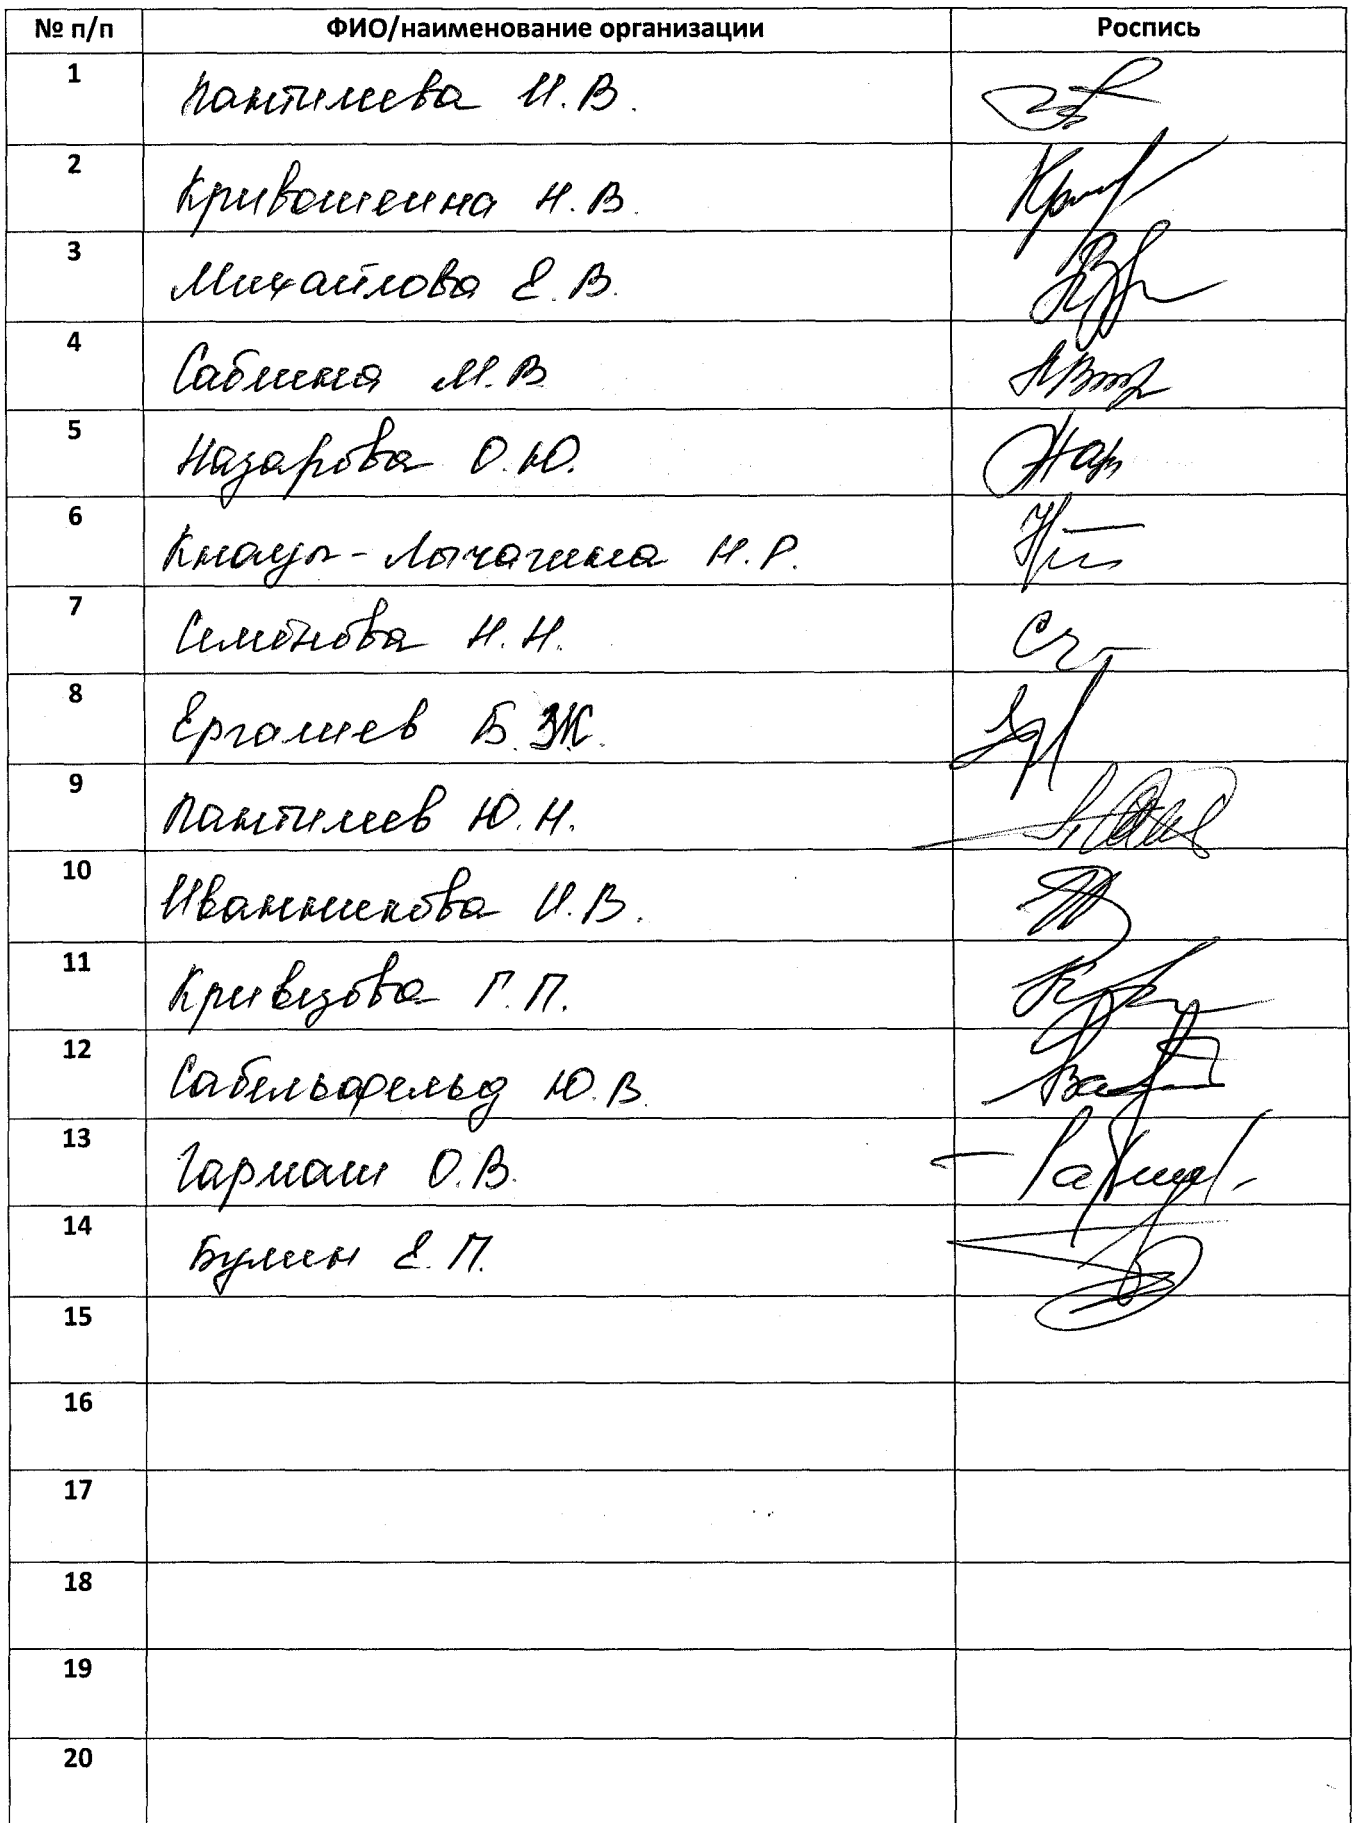 № п/п ФИО/наименование организации Роспись
1 Пантилеева И.В.
2 Кривошеина Н.В.
3 Михайлова Е.В.
4 Саблина М.В
5 Назарова О.Ю.
6 Кнауп-Лычагина Н.Р.
7 Семёнова Н.Н.
8 Ергалиев Б.Ж.
9 Пантилеев Ю.Н.
10 Иванникова И.В.
11 Кривизова Г.П.
12 Сабельфельд Ю.В.
13 Гармаш О.В.
14 Булин Е.П.
15
16
17
18
19
20